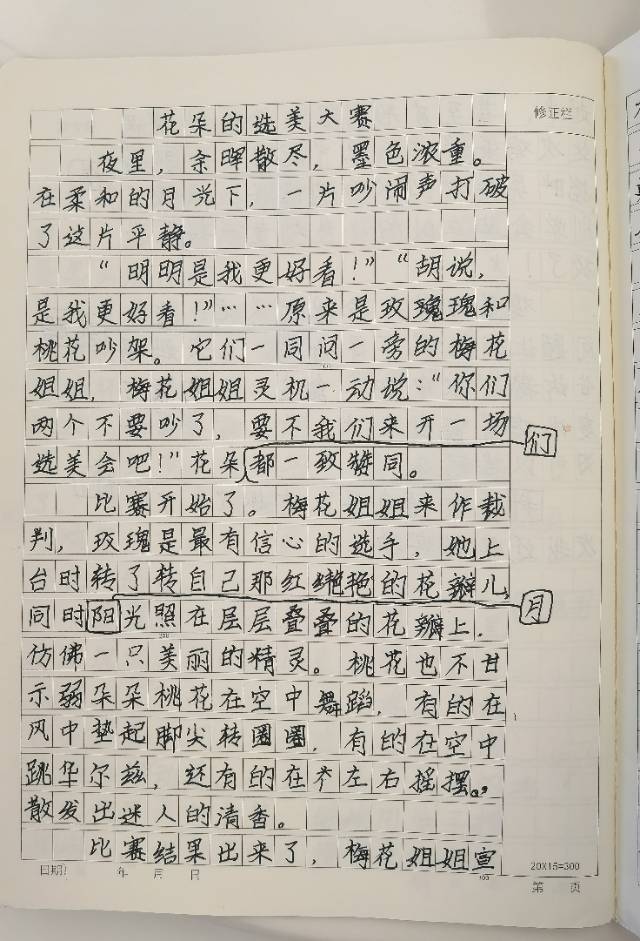 花朵的选美大赛
修正栏
夜里，余晖散尽，墨色浓重。
在柔和的月光下，一片吵闹声打破
了这片平静。
“明明是我更好看！”“胡说，
是我更好看！”……原来是玫瑰瑰和
桃花吵架。它们一同问一旁的梅花
姐姐，梅花姐姐灵机一动说：“你们
两个不要吵了，要不我们来开一场
们
选美会吧！”花朵都一致赞同。
比赛开始了。梅花姐姐来作裁
判，玫瑰是最有信心的选手，她上
台时转了转自己那红艳艳的花瓣儿，
月
同时阳光照在层层叠叠的花瓣上，
仿佛一只美丽的精灵。桃花也不甘
示弱朵朵桃花在空中舞蹈，有的在
风中垫起脚尖转圈圈，有的在空中
跳华尔兹，还有的在左右摇摆。，
散发出迷人的清香。
比赛结果出来了，梅花姐姐宣
日期： 年 月 日
20X15=300
第 页